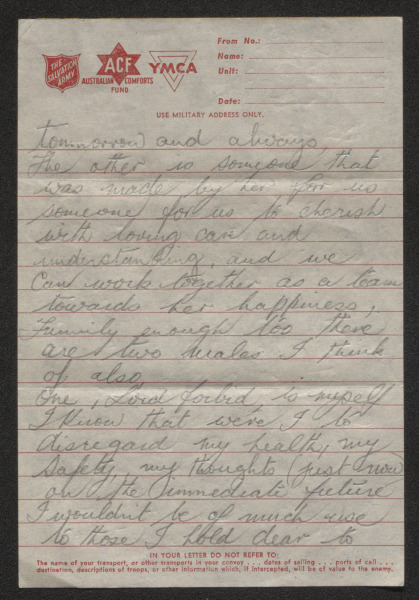 THE SALVATION ARMY
ACF
AUSTRALIAN COMFORTS FUND
YMCA
From No.:
Name:
Unit:
Date:
USE MILITARY ADDRESS ONLY.
tommorrow and always,
The other is someone that
was made by her for us
someone for us to cherish
with loving care and
understanding, and we
Can work together as a team
towards her happiness,
Funnily enough too there
are two males I think
of also
One, Lord forbid, is myself
I know that were I to
disregard my health, my
safety, my thoughts (just now
on the immediate future
I wouldn't be of much use
to those I hold dear to
IN YOUR LETTER DO NOT REFER TO:
The name of your transport, or other transports in your convoy . . . dates of sailing . . . ports of call . . .
destination, descriptions of troops, or other information which, if intercepted, will be of value to the enemy.